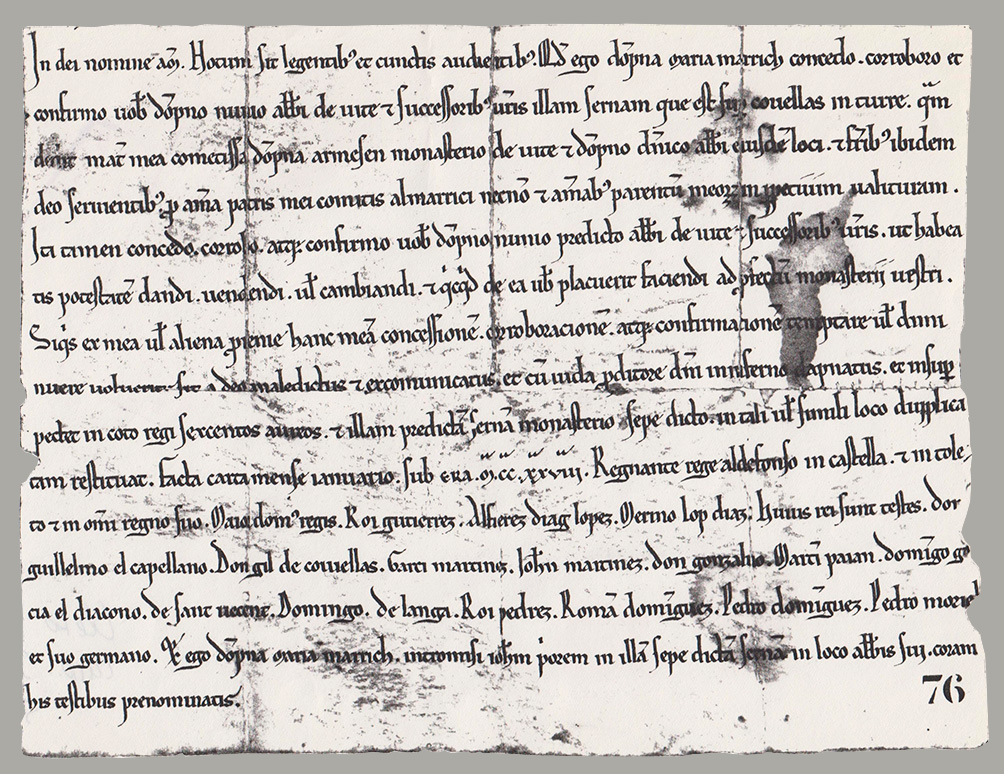 In dei nomine am̄. Notum sit legentibꝰ et cunctis audientibꝰ. Qđ ego dōpna maria manrrich concedo. corroboro et
confirmo uob̄ dōpno nunno abb̄i de uite ⁊ successoribꝰ ur̄is illam sernam que est sup couellas in turre. qm̄
mat̄ mea cometissa dōpna armesen monasterio de uite ⁊ dōpno dn̄ico abb̄i eiusdē loci. ⁊ fr̄ibꝰ ibidem
deo seruientibꝰ. ꝑ aīa patris mei comitis almanrici necnō ⁊ aīabꝰ parentū meoꝝ in ꝑpetuum ualituram.
Ista tamen concedo. corroboro. atqꝫ confirmo uob̄ dōpno nunno predicto abb̄i de uite ⁊ successoribꝰ ur̄is. ut habea
tis potestatē dandi. uendendi. ul̄ cambiandi. ⁊ qͥcqͥd de ea ub̄ placuerit faciendi ad ꝓfectū monasterij uestri.
Siqͥs ex mea ul̄ aliena ꝓgenie hanc meā concessionē. corroboracionē. atqꝫ confirmacionē temptare ul̄ dimi
nuere uoluerit. sit a deo maledictus ⁊ excomunicatus. et cū iuda ꝓditore dn̄i in inferno dapnatus. et insuꝑ
pectet in coto regi sexcentos aureos. ⁊ illam predictā sernā monasterio sepe dicto. in tali ul̄ simili loco dupplica
tam restituat. Facta carta mense ianuario. sub era. m̄.cc.xxviii. Regnante rege aldefonso in castella. ⁊ in tole,
to ⁊ in om̄i regno suo. Maiordomꝰ regis. Roi gutierrez. Alferez diag lopez. Merino lop diaz. Huius rei sunt testes. don
guillelmo el capellano. Don gil de couellas. Garci martinez. Ioh̄n martinez. don gonzaluo. Marti paian. domīgo g
cia el diacono. de sant uecent. Domingo. de langa. Roi pedrez. Romā domīguez. Pedro domīguez. Pedro morie
et suo germano. Et ego dōpna maria manrrich. intromisi ioh̄m pͥorem in illā sepe dictā sernā in loco abb̄is sui. coram
his testibus prenominatis.
76